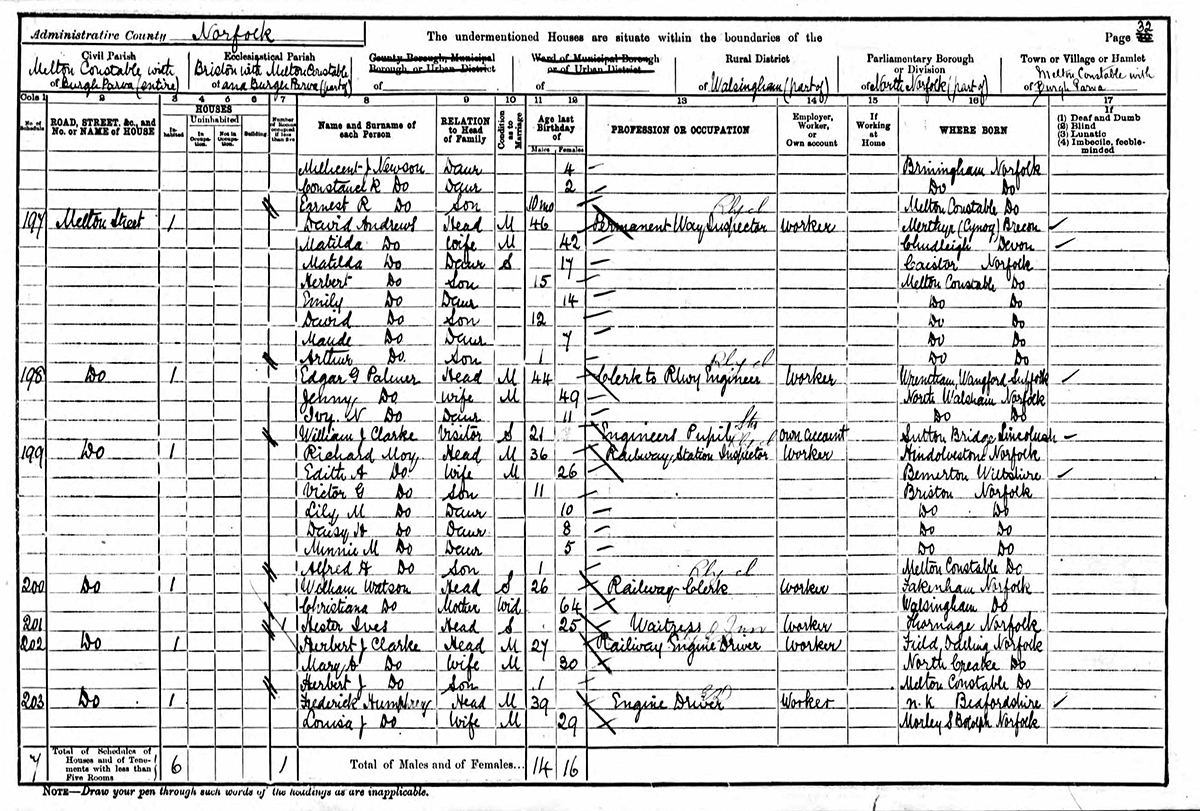 Administrative County Norfolk The undermentioned Houses are situate within the boundaries of the Page 32
Civil Parish Ecclesiastical Parish County Borough, Municipal Borough or Urban District Ward of Municipal Borough or of Urban District Rural District Parliamentary Borough or Division Town or Village or Hamlet
of Melton Constable with Burgh Parva (entire) of Briston with Melton Constable and Burgh Parva (part) of of of Walsingham (part of) of North Norfolk (part of) of Melton Constable with Burgh Parva
Cols 1 2 3 4 5 6 7 8 9 10 11 12 13 14 15 16 17
No. of Schedule ROAD, STREET, &c., and No. or NAME of HOUSE HOUSES Inhabited Uninhabited In Occupation. Not in Occupation. Building Number of Rooms occupied if less than five Name and Surname of each Person RELATION to Head of Family Condition as to Marriage Age last Birthday of Males Females PROFESSION OR OCCUPATION Employer, Worker, or Own account If Working at Home WHERE BORN If (1) Deaf and Dumb (2) Blind (3) Lunatic (4) Imbecile, feeble-minded
Millicent J Newson Daur 4 Briningham Norfolk
Constance R Do Daur 2 Do Do
Earnest R Do Son 10 mo Melton Constable Do
197 Melton Street 1 David Andrews Head M 46 Permanent Way Inspector Worker Merthyr (Cynog) Brecon
Matilda Do Wife M 42 Chudleigh Devon
Matilda Do Daur S 17 Caistor Norfolk
Herbert Do Son 15 Melton Constable Do
Emily Do Daur 14 Do Do
David Do Son 12 Do Do
Maude Do Daur 7 Do Do
Arthur Do Son 1 Do Do
198 Do 1 Edgar G Palmer Head M 44 Clerk to Rlwy Engineer Worker Wrentham, Wangford Suffolk
Jenny Do Wife M 49 North Walsham Norfolk
Ivy N Do Daur 11 Do Do
William J Clarke Visitor S 21 Engineers Pupil own account Sutton Bridge Lincolnsh
199 Do 1 Richard Moy Head M 36 Railway Station Inspector Worker Hindolveston Norfolk
Edith A Do Wife M 26 Bemerton Wiltshire
Victor G Do Son 11 Briston Norfolk
Lily M Do Daur 10 Do Do
Daisy A Do Daur 8 Do Do
Minnie M Do Daur 5 Do Do
Alfred A Do Son 1 Melton Constable Do
200 Do 1 William Watson Head S 26 Railway Clerk Worker Fakenham Norfolk
Christiana Do Mother Wid 64 Walsingham Do
201 1 Hester Ives Head S 25 Waitress Worker Thornage Norfolk
202 Do 1 Herbert J Clarke Head M 27 Railway Engine Driver Worker Field Dalling Norfolk
Mary A Do Wife M 30 North Creake Do
Herbert J Do Son 1 Melton Constable Do
203 Do 1 Frederick Humphrey Head M 39 Engine Driver Worker n.k Bedfordshire
Louisa J Do Wife M 29 Morley S Botolph Norfolk
7 Total of Schedules of Houses and of Tenements with less than Five Rooms 6 1 Total of Males and of Females... 14 16
NOTE—Draw your pen through such words of the headings as are inapplicable.